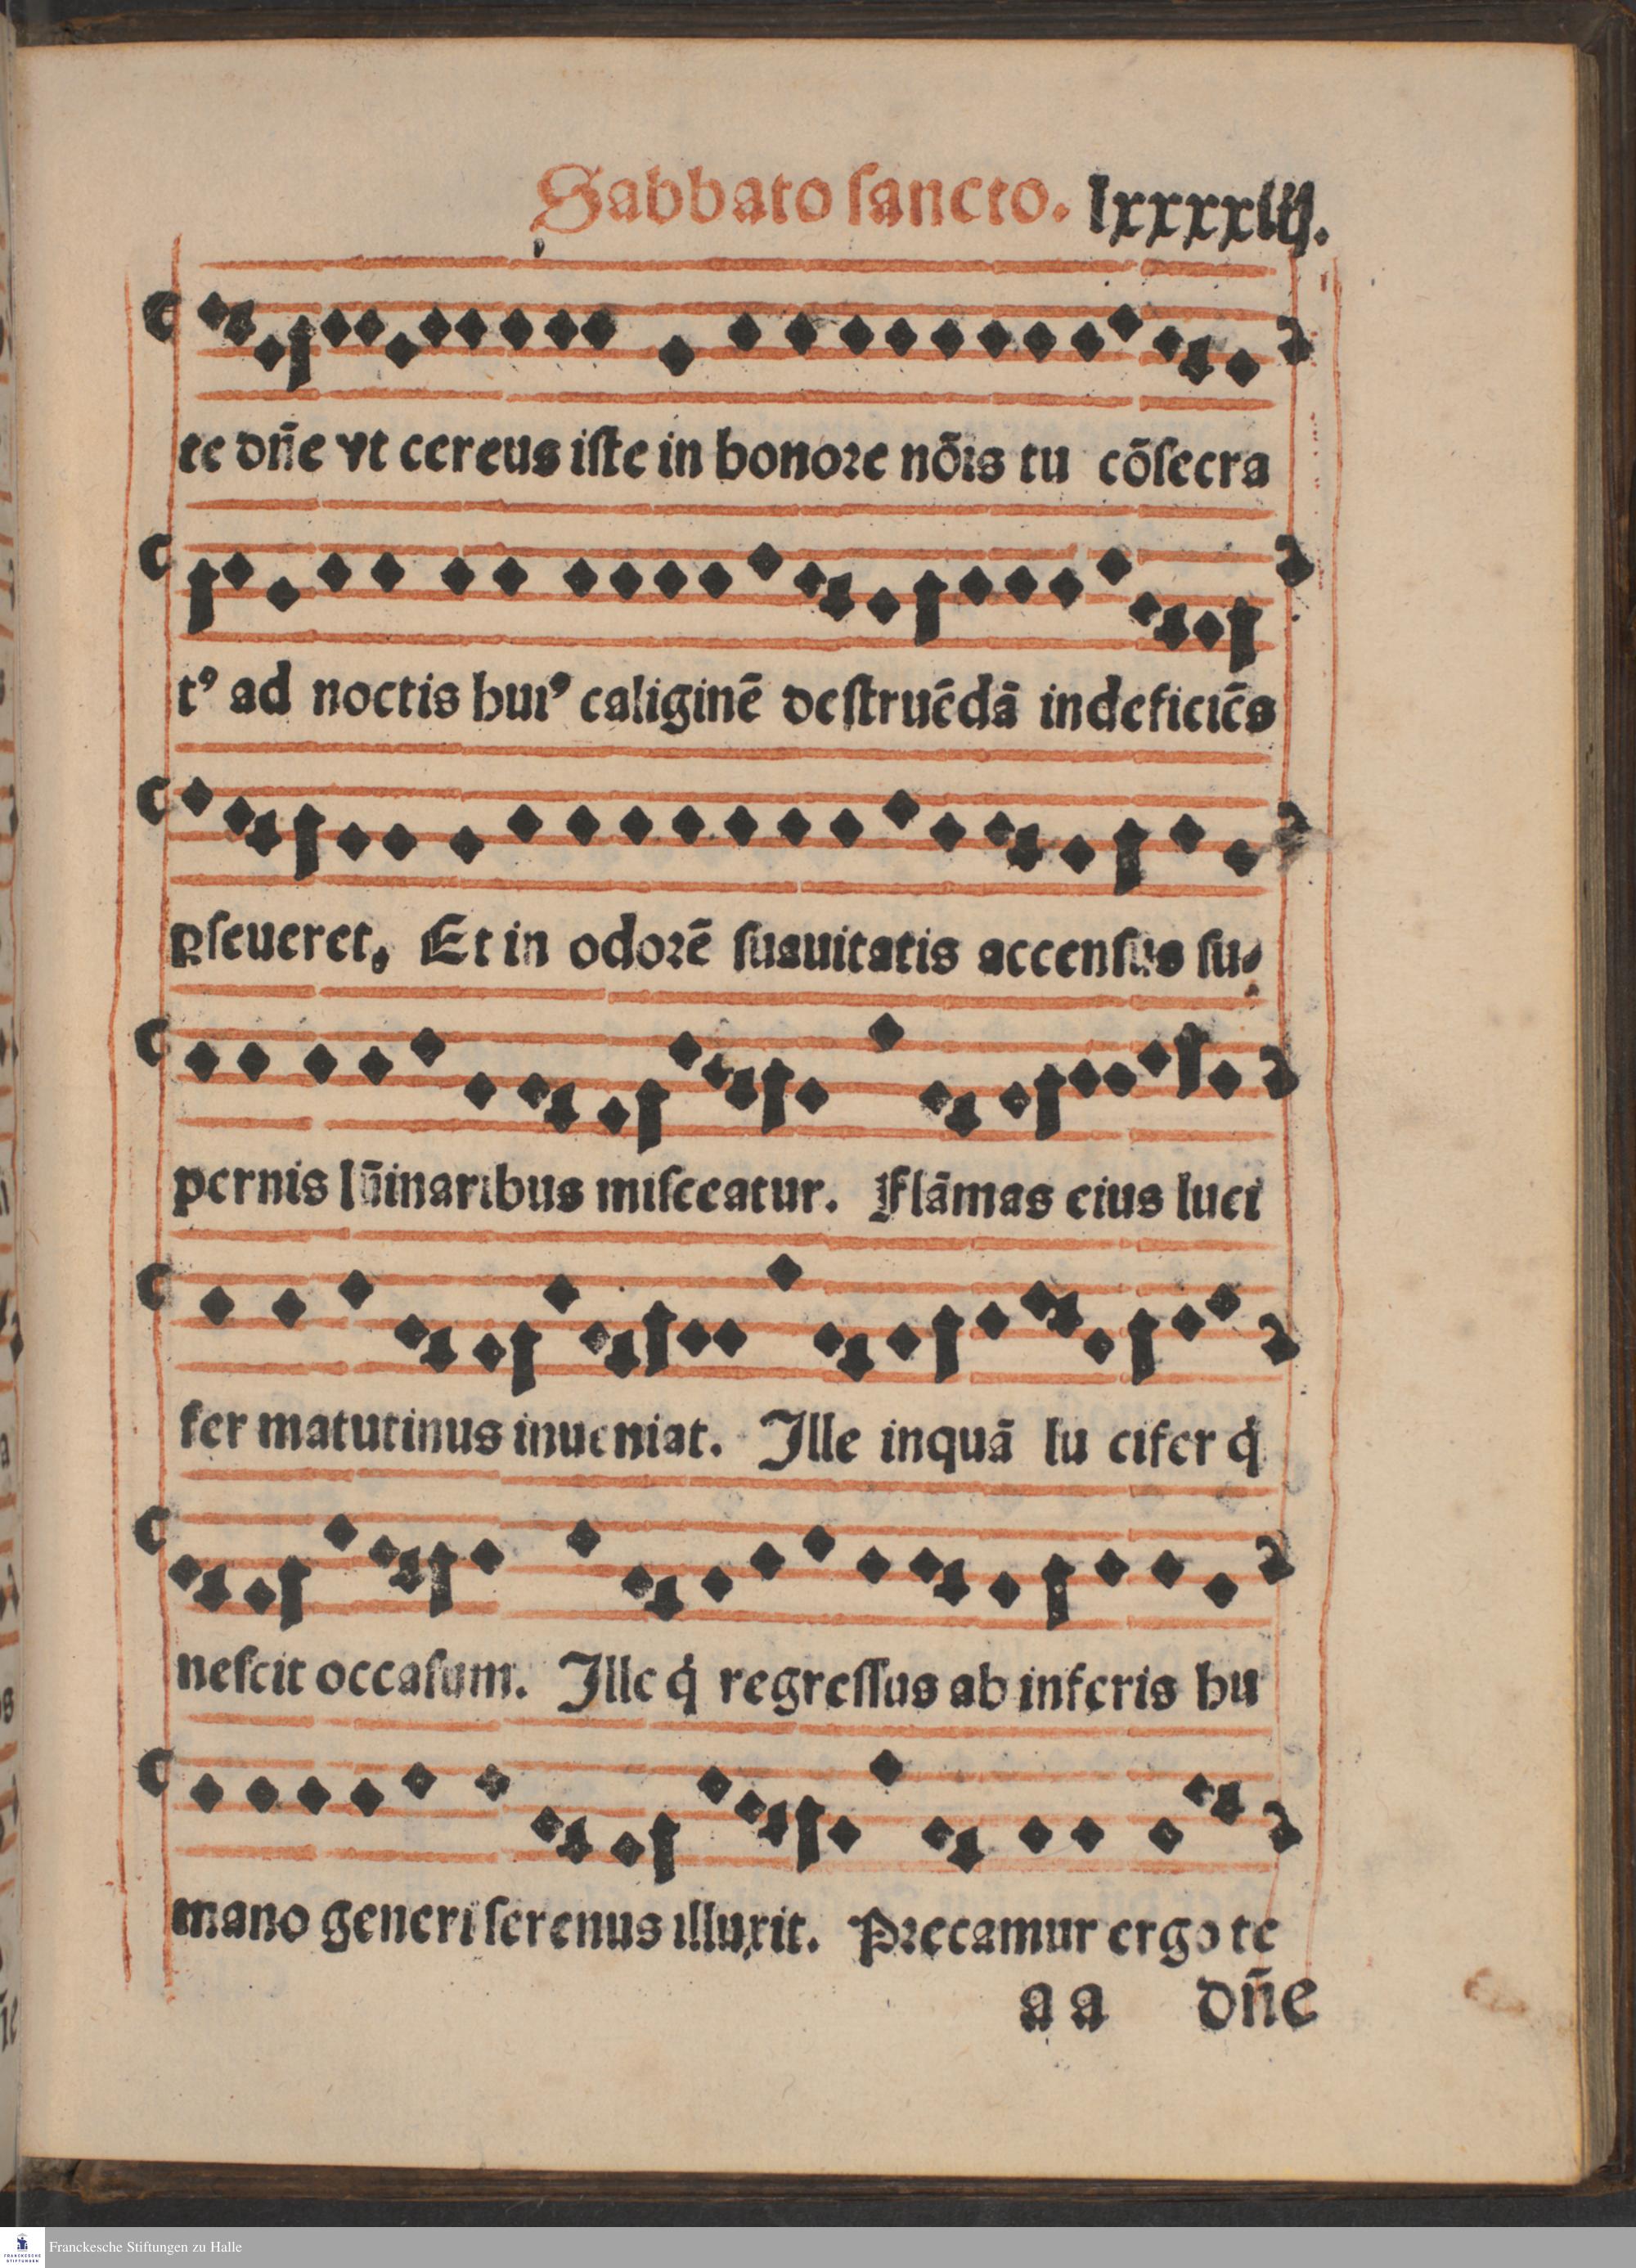 Sabbato sancto. lxxxxiij.
te dn̄e vt cereus iste in honore nōis tu cōsecra
tꝰ ad noctis huiꝰ caliginē destruēdā indeficiēs
ꝑseueret, Et in odorē suauitatis accensus su⸗
pernis lūinaribus misceatur. Flāmas eius luci
fer matutinus inueniat. Ille inquā lu cifer q̇
nescit occasum. Ille q̇ regressus ab inferis hu
mano generi serenus illuxit. Precamur ergo te
a a dn̄e
Franckesche Stiftungen zu Halle